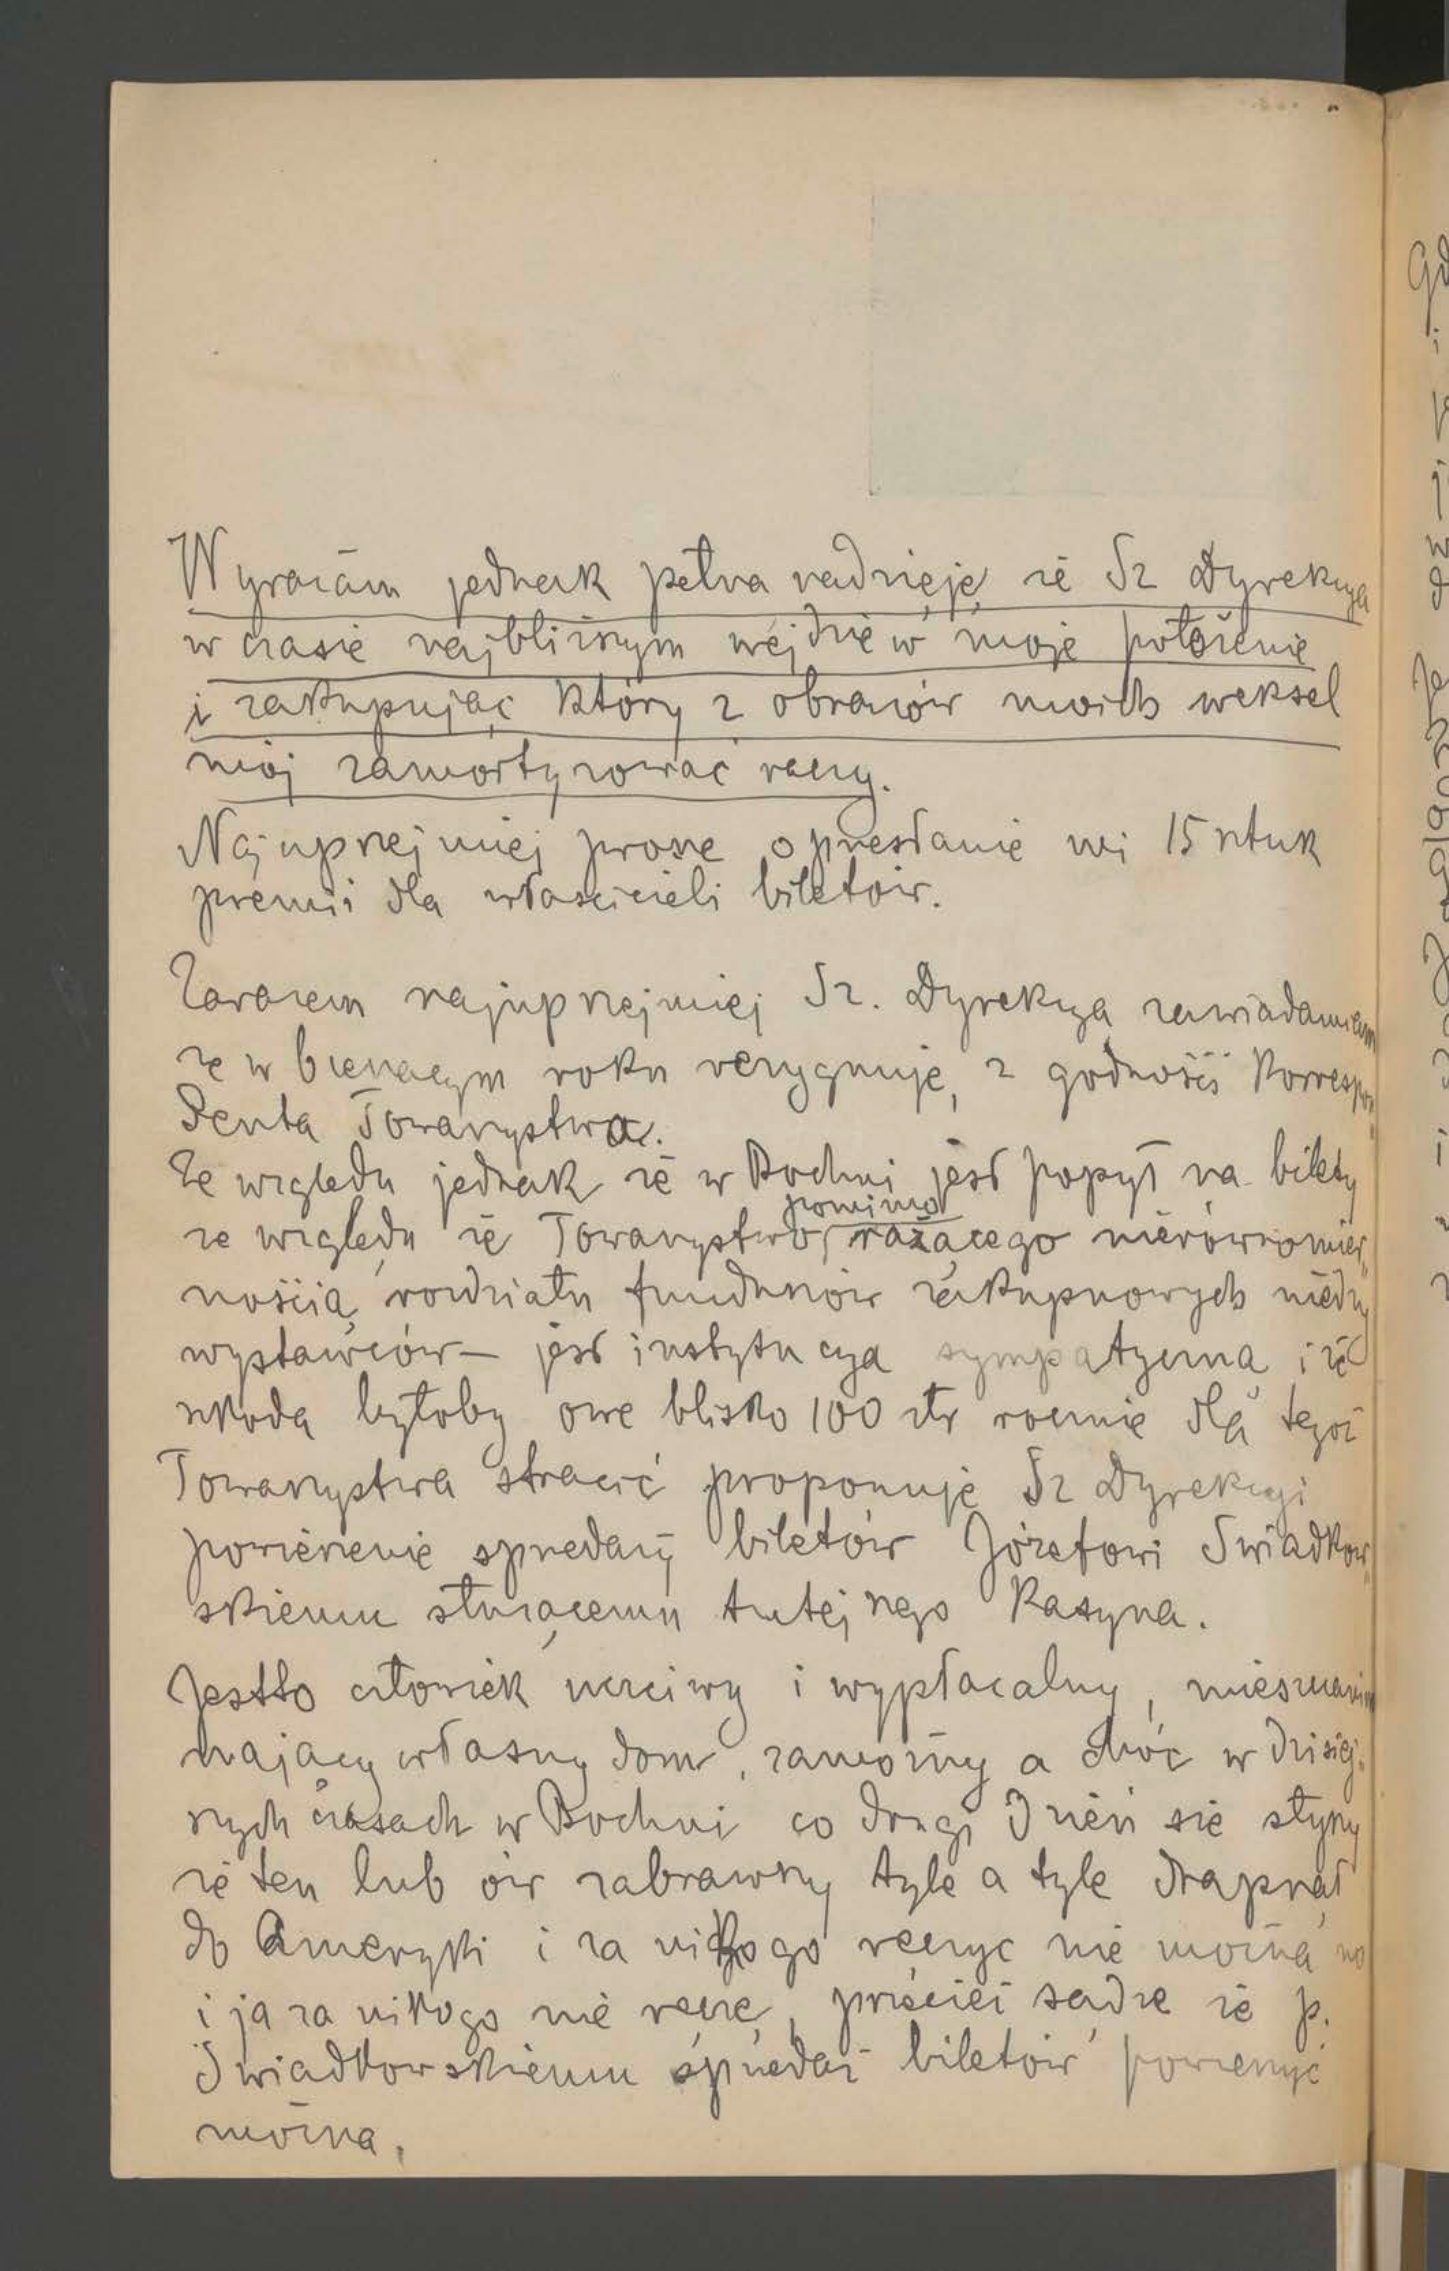 Wyrażam jednak pełną nadzieję że Sz Dyrekcya
w czasie najbliższym wejdzie w moje położenie
i zakupując który z obrazów moich weksel
mój zamortyzować raczy.
Najuprzejmiej proszę o przesłanie mi 15 sztuk
premii dla właścicieli biletów.
Zarazem najuprzejmiej Sz. Dyrekcyą zawiadamiam
że w bieżącym roku rezygnuję z godności Korrespon
denta Towarzystwa.
Ze względu jednak że w Bochni jest popyt na bilety
ze względu że Towarzystwo pomimo rażącego nierównomier
nością rozdziału funduszów zakupnowych między
wystawców — jest instytucyą sympatyczną i że
szkodą byłoby owe blisko 100 złr rocznie dla tegoż
Towarzystwa stracić proponuję Sz Dyrekcyi
powierzenie sprzedaży biletów Józefowi Swiadkow
skiemu służącemu tutejszego Kasyna.
Jestto człowiek uczciwy i wypłacalny, mieszczanin
mający własny dom, zamożny a choć w dzisiej
szych czasach w Bochni co drugi dzień się słyszy
że ten lub ów zabrawszy tyle a tyle drapnął
do Ameryki i za nikogo ręczyć nie można no
i ja za nikogo nie ręczę, przecież sądzę że p.
Swiadkowskiemu sprzedaż biletów powierzyć
można.